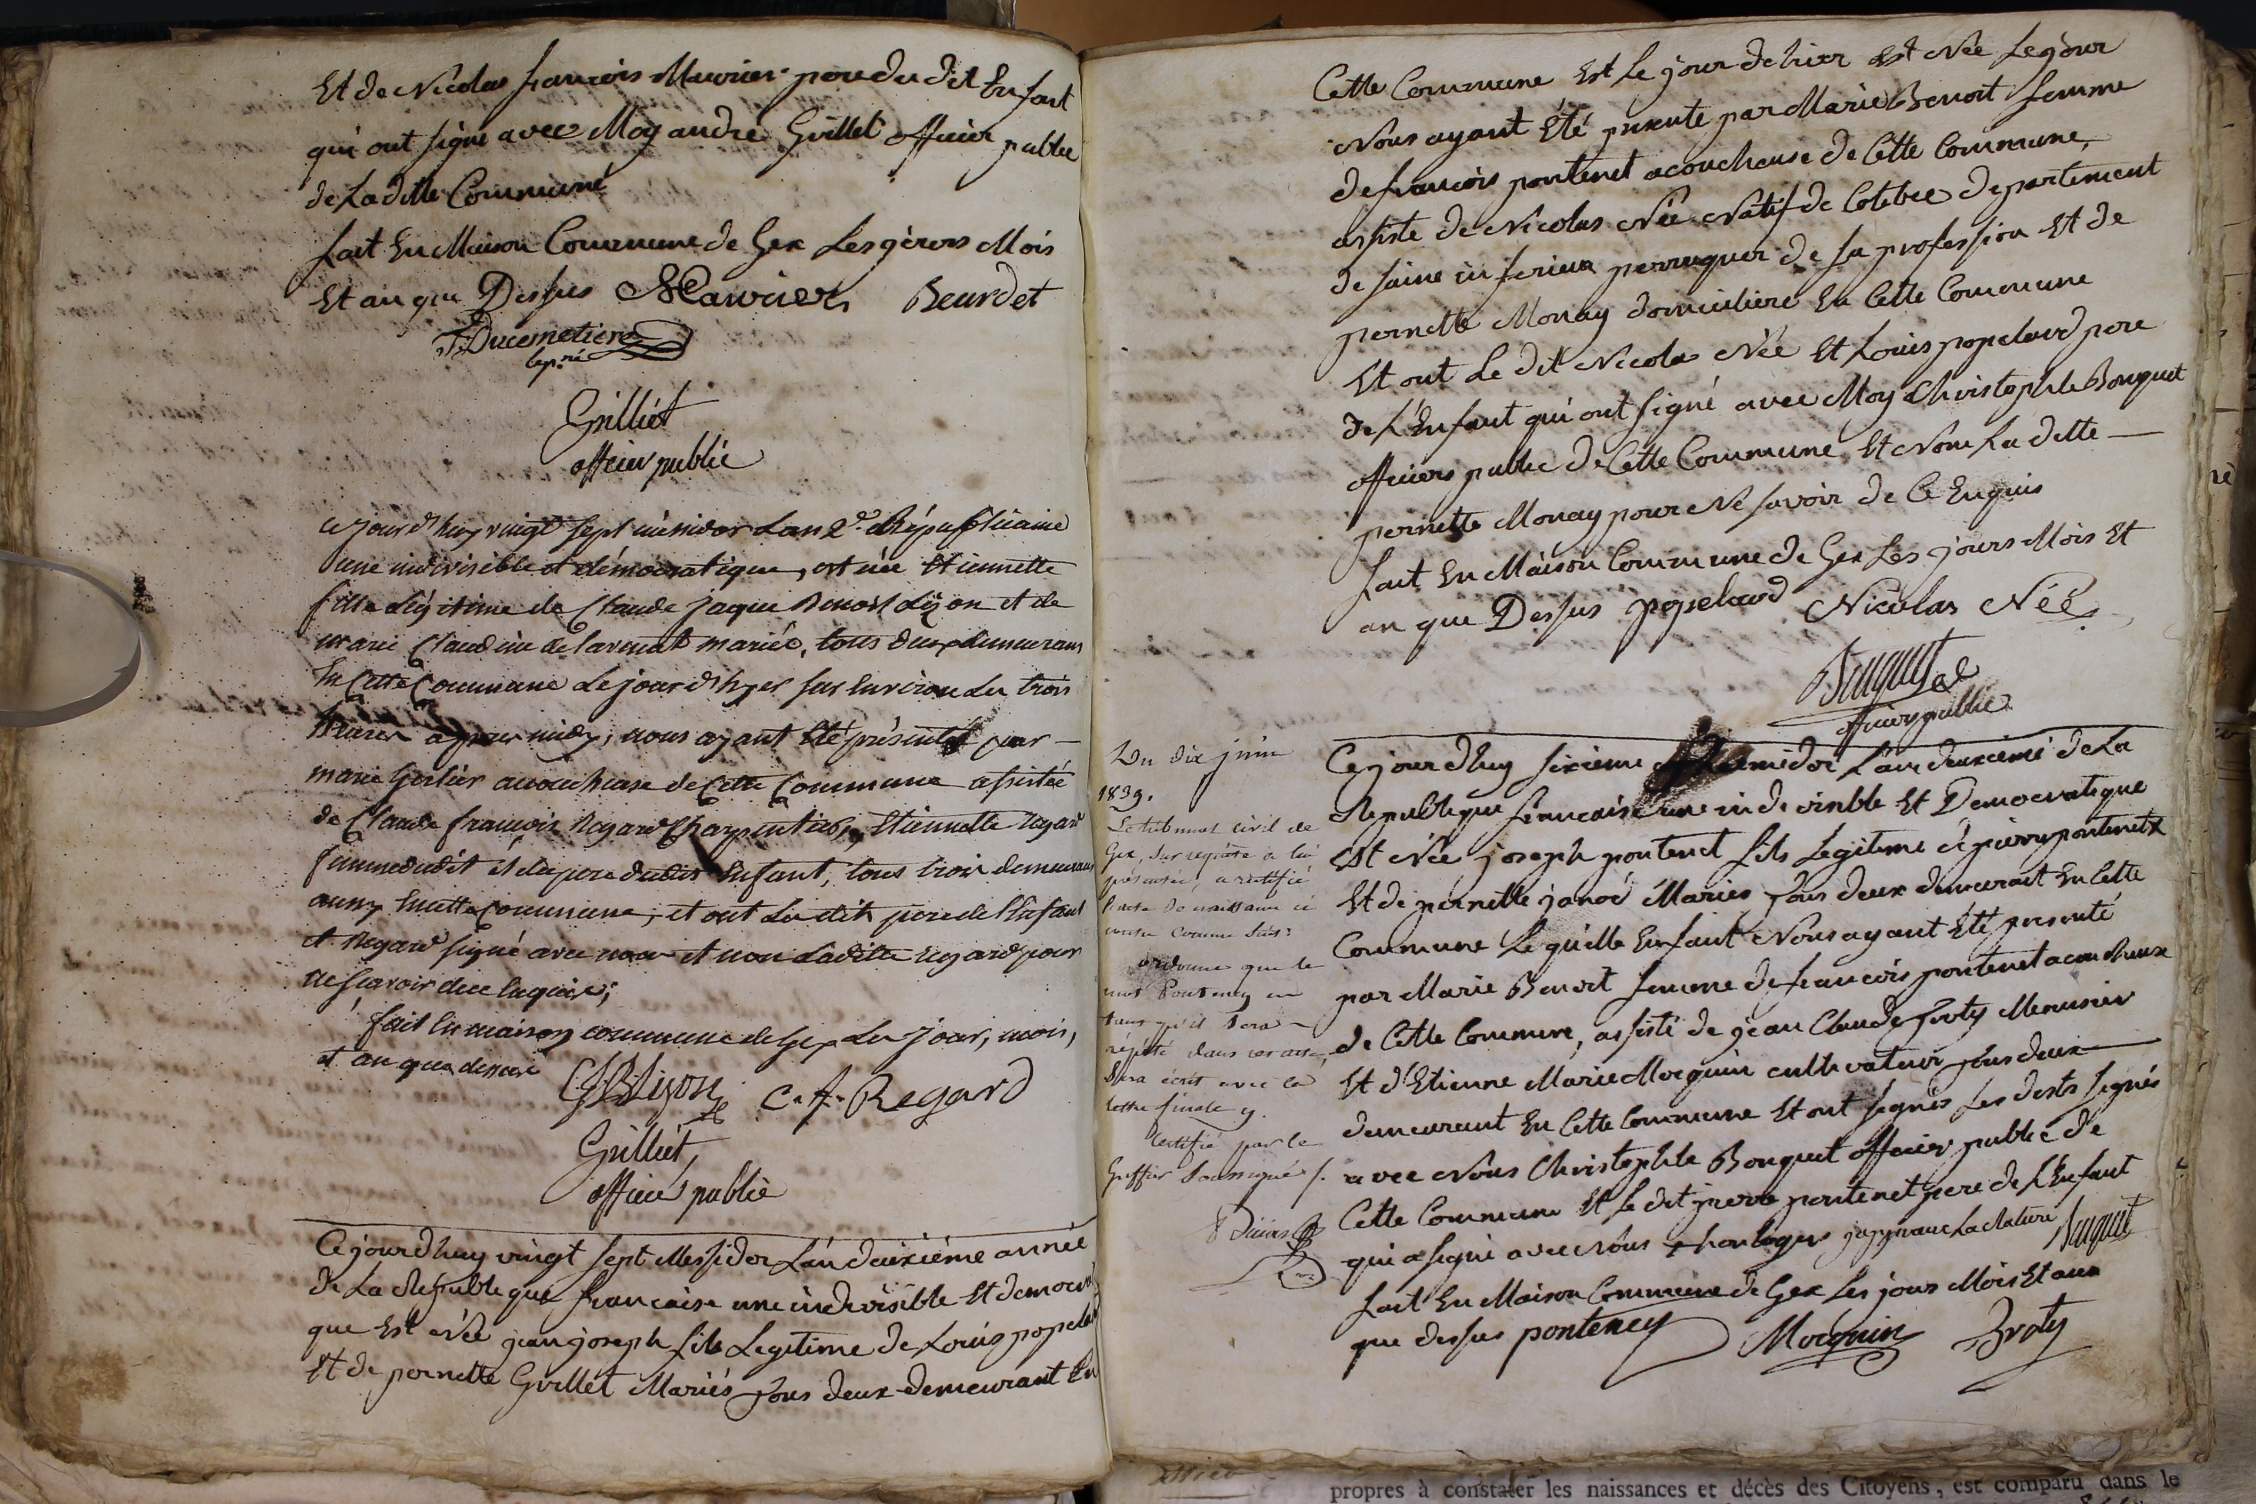 Et de Nicolas francois Mawrier pere du dit Enfant
qui ont signé avec Moy andré Grillet officier public
de La ditte Communé
fait En Maison Commune de Gex Les jours Mois
Et an que Dessus Mawrier Beurdet
J. Ducemetiere
Grilliét
officier public
ce jour d'huy vingt sept messidor L'an 2e. Républicaine
une indivisible et démocratique, est née Etiennette
fille Légitime de Claude Jaque Benoit Lizon et de
marie Claudine delavenat mariée, tous deux demeurans
En Cette Commune Le jour d'hyer sur Environ Les trois
heures apres midy; nous ayant Eté présenté par
marie Gorlier accoucheuse de Cette Commune assistée
de Claude francois Regard Charpentier, Etiennette Regard
femme dudit et du pere dudit Enfant, tous trois demeurans
aussy En cette Commune, et ont Le dit pere de l'Enfant
et Regard signé avec nous et non Laditte Regard pour
ne scavoir de ce Enquise;
fait En maison commune de Gex Les Jour, mois,
et an que dessus
CJBLizon C. f. Regard
Grilliét,
officié publié
Ce jourdhuy vingt sept Messidor L'an deuxiéme année
de La Republeque francaise une indivisible Et democrati
que Est Née jean joseph fils Legitime de Louis popelard
Et de pernette Grillet Mariés Tous deux demeurant En
Cette Commune Est Le jour dehier Est Née Le jour
Nous ayant Eté presente par Marie Benoit femme
de francois pontenet acoucheuse de Cette Commune,
assiste de Nicolas Née Natif de Colebec departement
de saine inferieux perruquer de sa profession Et de
pernette Monay domiciliere En Cette Commune
Et ont Le dit Nicolas Née Et Louis popelard pere
de L'Enfant qui ont signé avec Moy Christophle Bouquet
officiers public de Cette Commune Et Non La ditte
pernette Monay pour Ne savoir de Ce Enquis
fait En Maison Commune de Gex Les jours Mois Et
an que Dessus popelard Nicolas Née
Bouquet
officiers public
Du dix juin
1839.
Le tribunal civil de
Gex, sur requête à lui
présentée, a rectifié
l'acte de naissance ci
contre comme suit:
ordonne que le
mot Ponteney en
tant qu'il sera
répété dans cet acte,
sera écrit avec la
lettre finale y.
Certifié par le
Greffier soussigné /.
Ce jourdhuy sixieme Termidor L'an deuxiemé de La
Republeque francaise une indivisible Et Democratique
Est Née joseph pontenet fils Legitime de pierre pontenet
Et de pernette janod Mariés Tous deux demeurant En Cette
Commune Le quelle Enfant Nous ayant Eté presenté
par Marie Benoit femme de francois pontenet acoucheuse
de Cette Commune, assisté de jean Claude Broty Menusier
Et d'Etienne Marie Moquin cultivateur Tous deux
demeurant En Cette Commune Et ont signés Les dests segnés
avec Nous Christophle Bouquet officier public de
Cette Commune Et Le dit pierre pontenet pere de L'Enfant
qui a segné avec Nous horloger japprouve La Rature Bouquet
fait En Maison Commune de Gex Les jours Mois Et an
que dessus ponteney Moquin Broty
propres à constater les naissances et décès des Citoyens, est comparu dans le